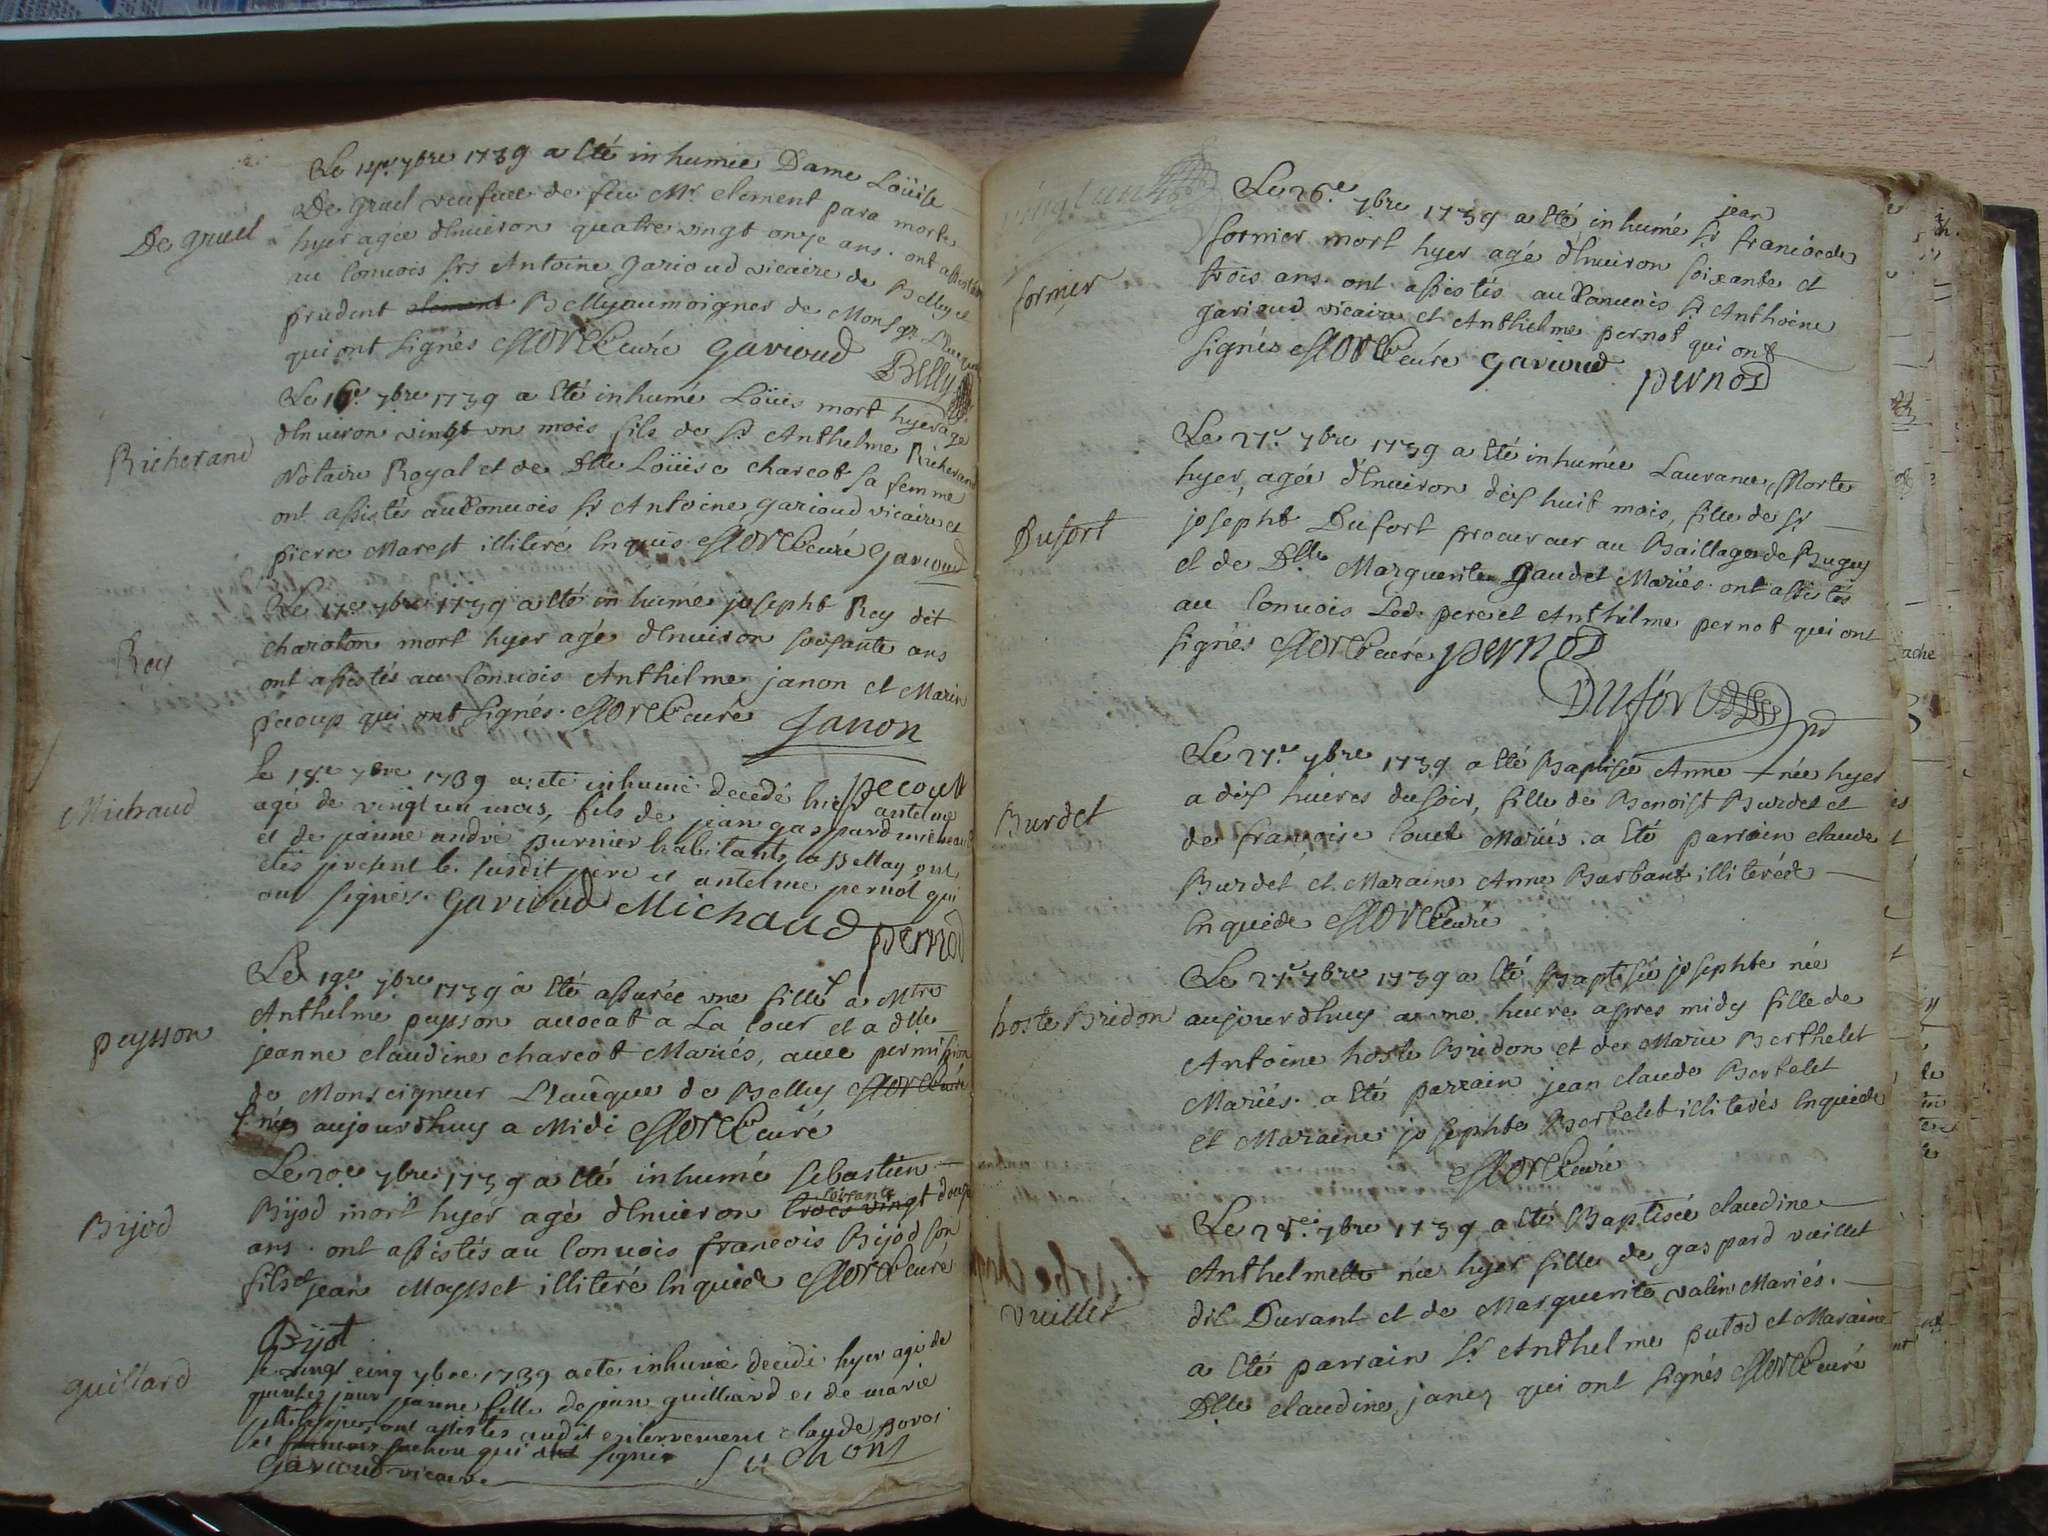 De gruel
Le 14e 7bre 1739 a Eté inhumée Dame Loüise
De gruel veufue de feu Mr. clement para morte
hyer agée d'Enuiron quatre vingt onze ans. ont assistés
au Conuois Srs Antoine garioud vicaire de Belley et
prudent clement Belly aumoigner de Monsgr. L'Euêque
qui ont signés Curé garioud
Belly
Richerand
Le 16e 7bre 1739 a Eté inhumé Loüis mort hyer agé
d'Enuiron vingt vn mois fils de Sr. Anthelme Richerand
Notaire Royal et de Dlle Loüise charcot sa femme
ont assistés au Conuois Sr Antoine garioud vicaire et
pierre Marest illiteré Enquis Curé garioud
Rey
Le 17e 7bre 1739 a Eté inhumé josepht Rey dit
charoton mort hyer agé d'Enuiron soisante ans
ont assistés au Conuois Anthelme janon et Marin
pacoup qui ont signés. Curé Janon
pecoult
Michaud
le 18e 7bre 1739 a eté inhumé decedé hier antelme
agé de vingt un mois, fils de jean gaspard michaud
et de jeanne andré purnier habitants a Bellay ont
etés present le susdit pere et antelme pernot qui
ont signés. garioud Michaud
pernod
peysson
Le 19e 7bre 1739 a Eté assurée vne fille a Mtre
Anthelme peysson auocat a La Cour et a dlle
jeanne claudine charcot Mariés, auec permission
de Monseigneur L'Euêque de Belley Curé
née aujourdhuy a Midi Curé
Bijod
Le 20e 7bre 1739 a Eté inhumé sebastien
Bijod mort hyer agé d'Enuiron soixante trois vingt douze
ans. ont assistés au Conuois francois Bijod son
fils et jean Maysset illiteré Enquide Curé
Bijot
guilliard
le vingt cinq 7bre 1739 a eté inhumé decedé hyer agé de
quinze jour jeanne fille de jean guilliard et de marie
ont assistes audit enterrement claude
et suchon qui signé
garioud vicaire. suchont
fornier
Le 26e 7bre 1739 a Eté inhumé Sr jean francois de
fornier mort hyer agé d'Enuiron soixante et
trois ans. ont assistés au Conuois Sr Anthoine
garioud vicaire et Anthelme pernot qui ont
signés Curé garioud
pernod
Dufort
Le 27e 7bre 1739 a Eté inhumée Laurance, Morte
hyer, agée d'Enuiron dix huit mois, fille de Sr
josepht Dufort procureur au Baillage de Bugey
et de Dlle Marguerite gaudet Mariés. ont assistés
au Conuois Led. pere et Anthelme pernot qui ont
signés Curé pernod
Dufort
Burdet
Le 27e 7bre 1739 a Eté Baptisée Anne née hyer
a dix hueres du soir, fille de Benoist Burdet et
de françoise Couet Mariés. a Eté parrain claude
Burdet et Maraine Anne Barbant illiterés
Enquide Curé
hoste Bridon
Le 27e 7bre 1739 a Eté Baptisée josephte née
aujourdhuy a vne huere apres midy fille de
Antoine hoste Bridon et de Marie Berthelet
Mariés. a Eté parrain jean claude Bertelet
et Maraine josephte Bertelet illiterés Enquide
Curé
vuillet
Le 28e 7bre 1739 a Eté Baptisée claudine
Anthelmette née hyer fille de gaspard vuillet
dit Durant et de Marguerite valin Mariés.
a Eté parrain Sr Anthelme putod et Maraine
Dlle claudine janez qui ont signés Curé